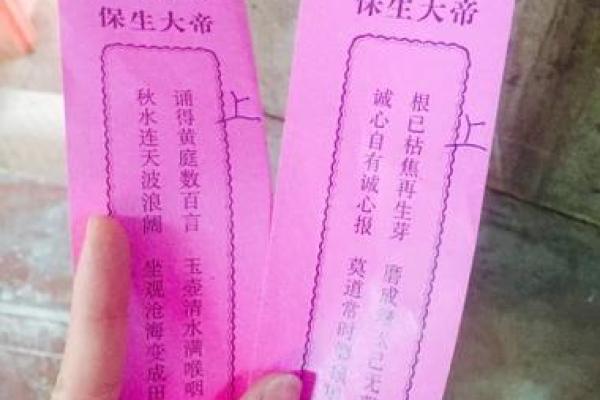 保生大帝
上
诵得黄庭数百言 玉壶清水满喉咽
秋水连天波浪阔 坐观沧海变成田
保生大帝
上
根已枯焦再生芽 磨成 已无
诚心自有诚心报 莫道常时